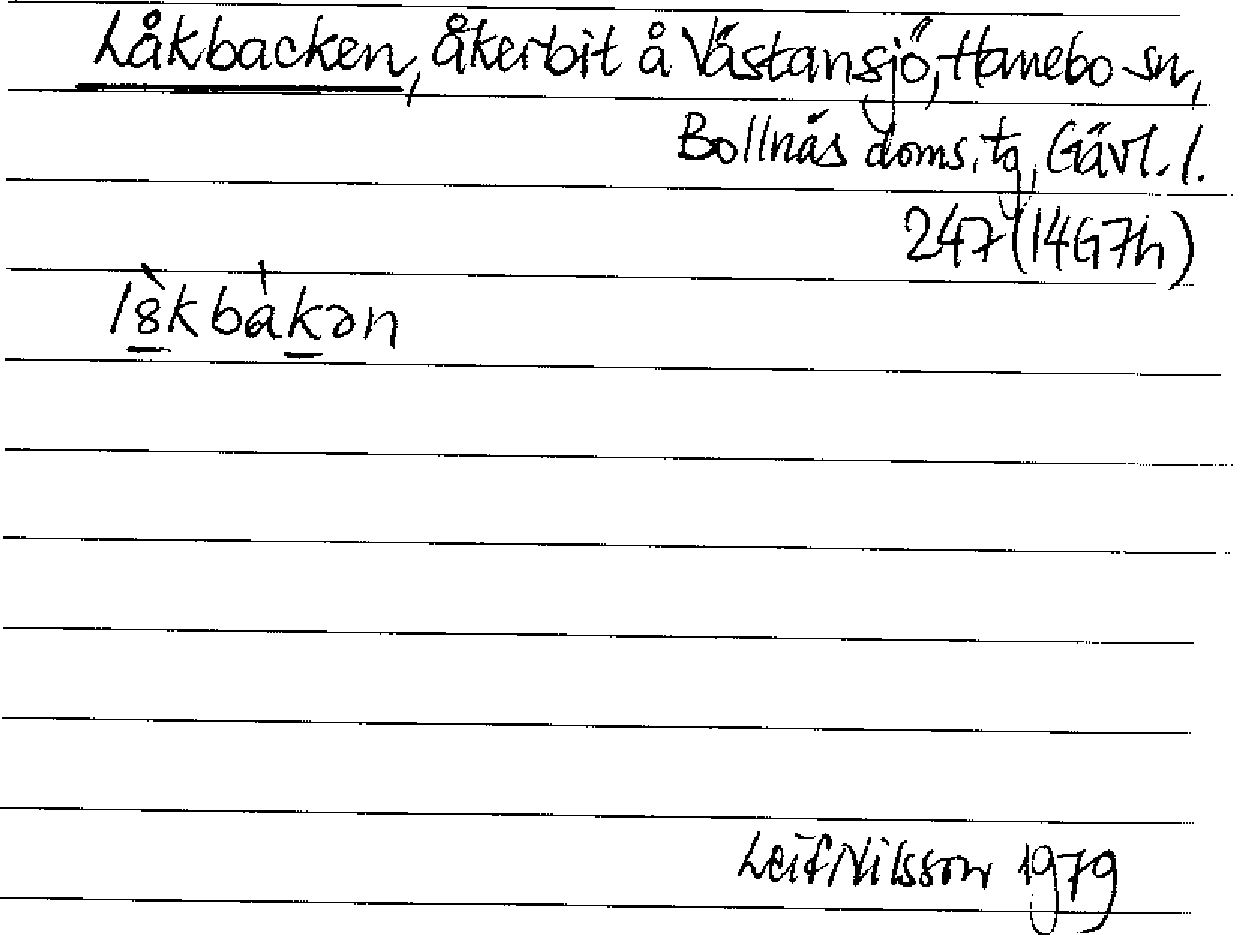 Låkbacken, åkerbit å Västansjö, Hanebo sn,
Bollnäs doms. tg, Gävl. l.
247 (14G7h)
Leif Nilsson 1979